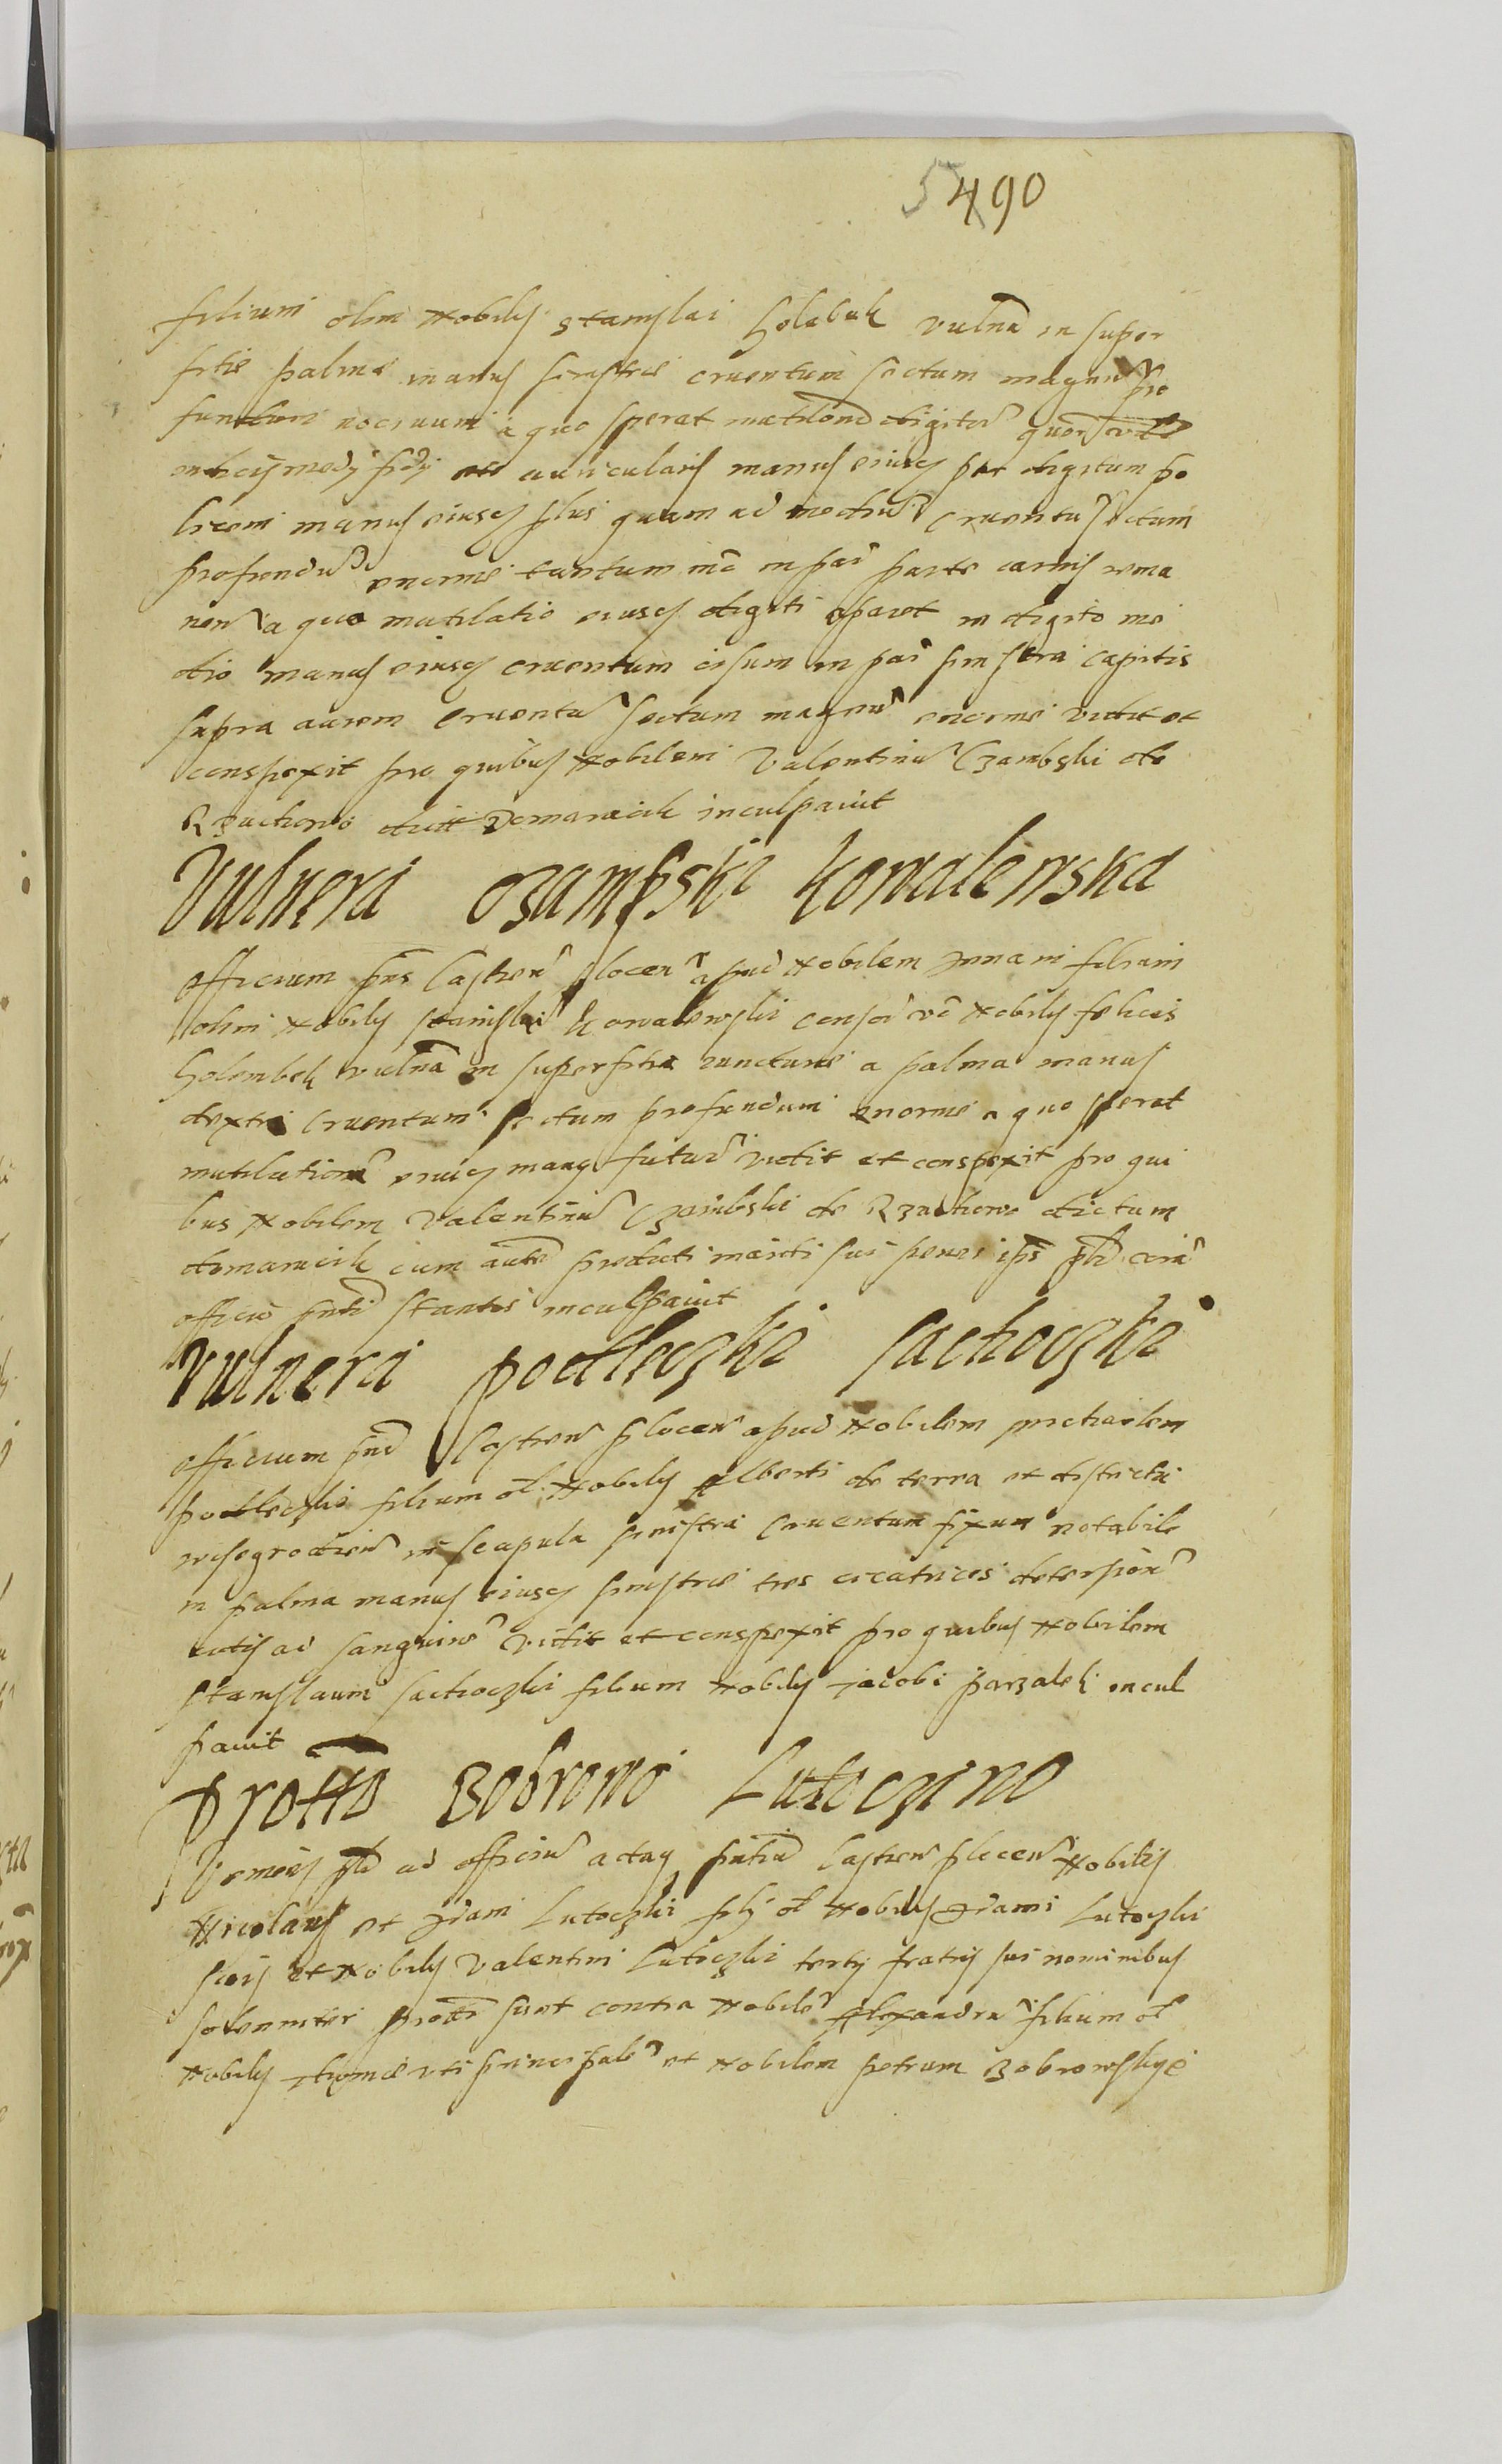 5490
filium olim Nobilis Stanislai Golabek vulna in super
fitie palme manus sinistre cruentum sectum magnum pro
fundum nocivum a quo sperat mutilatione digitor quor
indicis medy auricularis manus eiusq per digitum po
licem manus eiusq plus quam ad mediu cruentu sectum
profundu enorme tantum in pai parte carnis rema
nen a quo mutilatio eiusq digiti aparet in digito me
dio manus eiusq cruentum cisum in pai sinistra capitis
supra aurem cruentu sectum magnu enorme vidit et
conspexit pro quibus Nobilem Valentinu Czambski de
Rzachowo dict Domaracik inculpavit
Vulnera Czampski Kowalewska
Officium pns Castren plocen apud Nobilem Annam filiam
olim Nobilis Stanislai Kowalewski consor vo Nobilis felicis
Golembek vulna in superfitie iuncture a palma manus
dextre cruentum sectum profundum enorme a quo sperat
mutilatione eiusq manq futura vidit et conspexit pro qui
bus Nobilem Valentinu Czambski de Rzachowo dictum
domaracik cum aute predicti mariti sui penes ips
officio pnti stantis inculpavit
Vulnera podleczki sachoczki
Officium pns Castren plocen apud Nobilem michaelem
podleczki filium ol Nobilis Alberti de terra et districtu
wisegrodien in scapula sinistra cruentum fixum notabile
in palma manus eiusq sinistre tres cicatrices detersione
cutis ad sanguine vidit et conspexit pro quibus Nobilem
Stanislaum sachoczki filium Nobilis Jacobi parzalek incul
pavit
Protto Bobrowo Lutoczino
Venies ad officiu actaq pntia Castren plocen Nobiles
Nicolaus et Adam Lutoczki fily ol Nobilis Adami Lutoczki
suis et Nobilis Valentini Lutoczki terty fratris sui nominibus
solenniter protti sunt contra Nobile Alexandru filium ol
Nobilis Thome uti principale et Nobilem petrum Bobrowskye